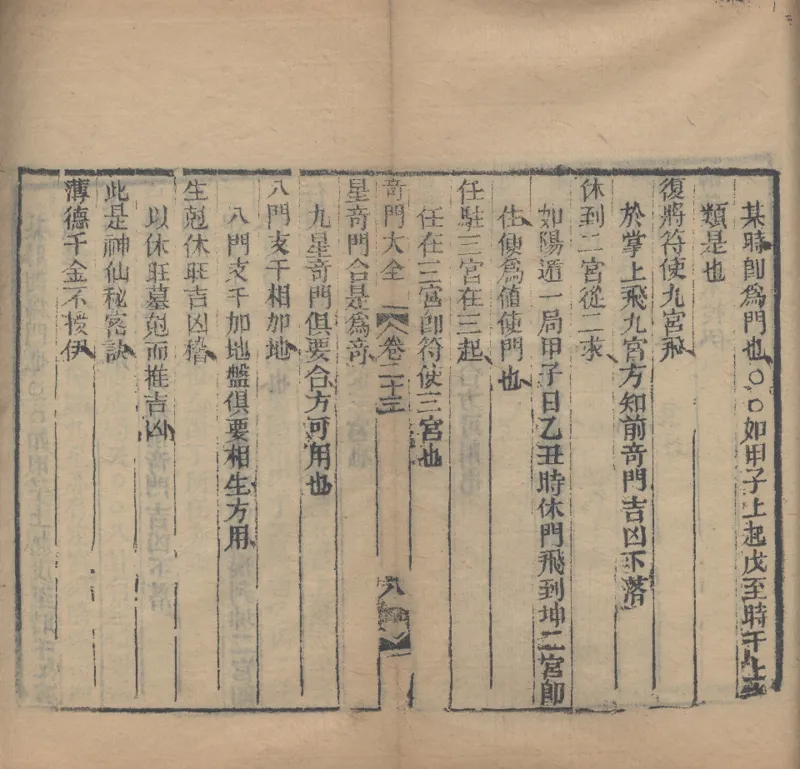 某時卽爲門也〇〇如甲子上起戊至時干上
類是也
復將符使九宮飛
於掌上飛九宮方知前竒門吉凶下落
休到二宮從二求
如陽遁一局甲子日乙丑時休門飛到坤二宮卽
使爲値使門也
任駐三宮在三起
任在三宮卽符使三宮也
竒門大全 卷二十三 八
星竒門合是爲竒
九星竒門俱要合方可用也
八門支干相加地
八門支干加地盤俱要相生方用
生尅休旺吉凶稽
以休旺墓尅而推吉凶
此是神仙秘密訣
薄德千金不授伊